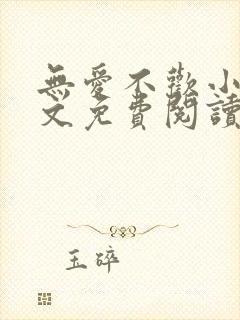 無愛不歡小
文免費閱讀
玉碎